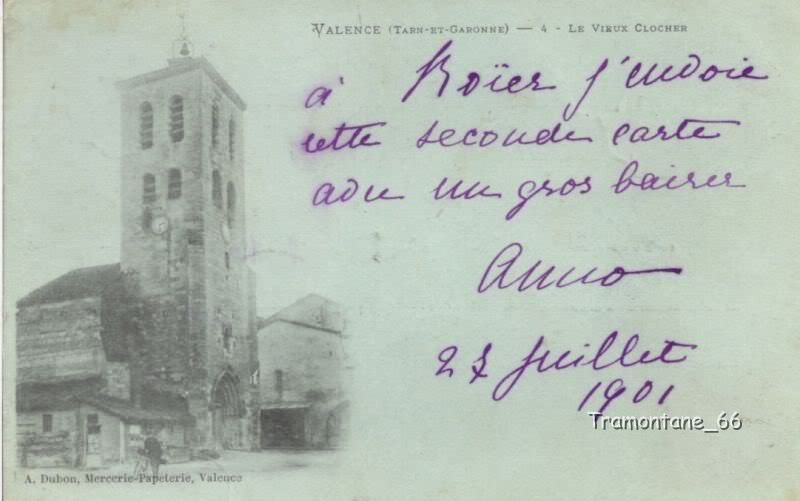 VALENCE (TARN-ET-GARONNE) — 4 - LE VIEUX CLOCHER
à Roïer j'endoie
cette seconde carte
adu un gros baiser
Anna
27 juillet
1901
Tramontane_66
A. Dubon, Mercerie-Papeterie, Valence